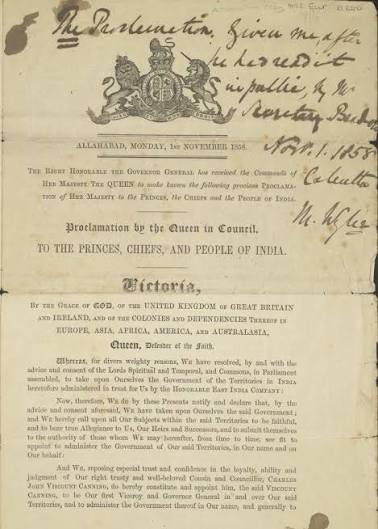 The Proclamation. Given me, after
he had read it
in public, by Mr
Secretary
Novr. 1. 1858
Calcutta
ALLAHABAD, MONDAY, 1ST NOVEMBER 1858.
THE RIGHT HONORABLE THE GOVERNOR GENERAL has received the Commands of
HER MAJESTY THE QUEEN to make known the following gracious PROCLAMA-
TION of HER MAJESTY to the PRINCES, the CHIEFS and the PEOPLE OF INDIA.
Proclamation by the Queen in Council,
TO THE PRINCES, CHIEFS, AND PEOPLE OF INDIA.
Victoria,
BY THE GRACE OF GOD, OF THE UNITED KINGDOM OF GREAT BRITAIN
AND IRELAND, AND OF THE COLONIES AND DEPENDENCIES THEREOF IN
EUROPE, ASIA, AFRICA, AMERICA, AND AUSTRALASIA,
Queen, Defender of the Faith.
Whereas, for divers weighty reasons, We have resolved, by and with the
advice and consent of the Lords Spiritual and Temporal, and Commons, in Parliament
assembled, to take upon Ourselves the Government of the Territories in INDIA
heretofore administered in trust for Us by the HONORABLE EAST INDIA COMPANY;
Now, therefore, We do by these Presents notify and declare that, by the
advice and consent aforesaid, We have taken upon Ourselves the said Government;
and We hereby call upon all Our Subjects within the said Territories to be faithful,
and to bear true Allegiance to Us, Our Heirs and Successors, and to submit themselves
to the authority of those whom We may hereafter, from time to time, see fit to
appoint to administer the Government of Our said Territories, in Our name and on
Our behalf:
And We, reposing especial trust and confidence in the loyalty, ability and
judgment of Our right trusty and well-beloved Cousin and Councillor, CHARLES
JOHN VISCOUNT CANNING, do hereby constitute and appoint him, the said VISCOUNT
CANNING, to be Our first Viceroy and Governor General in and over Our said
Territories, and to administer the Government thereof in Our name, and generally to